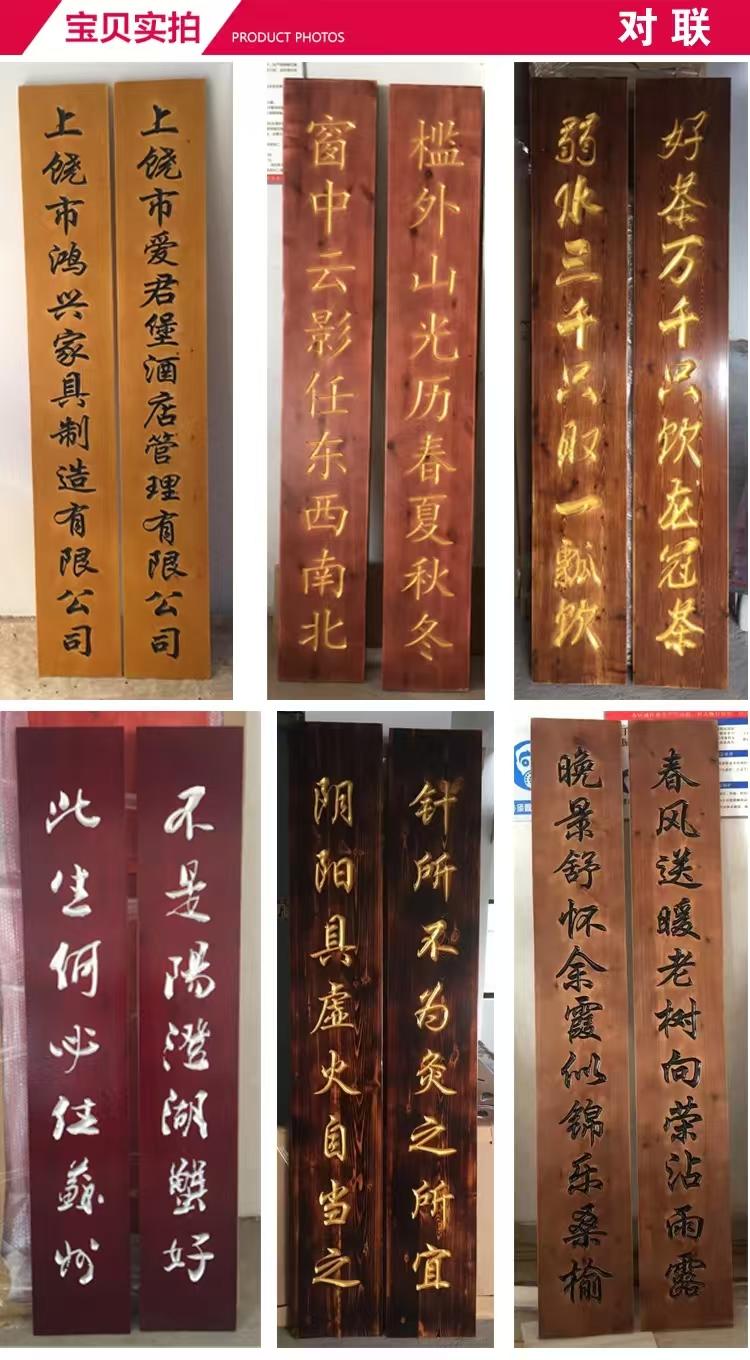 宝贝实拍
PRODUCT PHOTOS
对联
上饶市爱君堡酒店管理有限公司
上饶市鸿兴家具制造有限公司
槛外山光历春夏秋冬
窗中云影任东西南北
好茶万千只饮龙冠茶
弱水三千只取一瓢饮
不是陽澄湖蟹好
此生何必住蘇州
针所不为灸之所宜
阴阳具虚火自当之
春风送暖老树向荣沾雨露
晚景舒怀余霞似錦乐桑榆